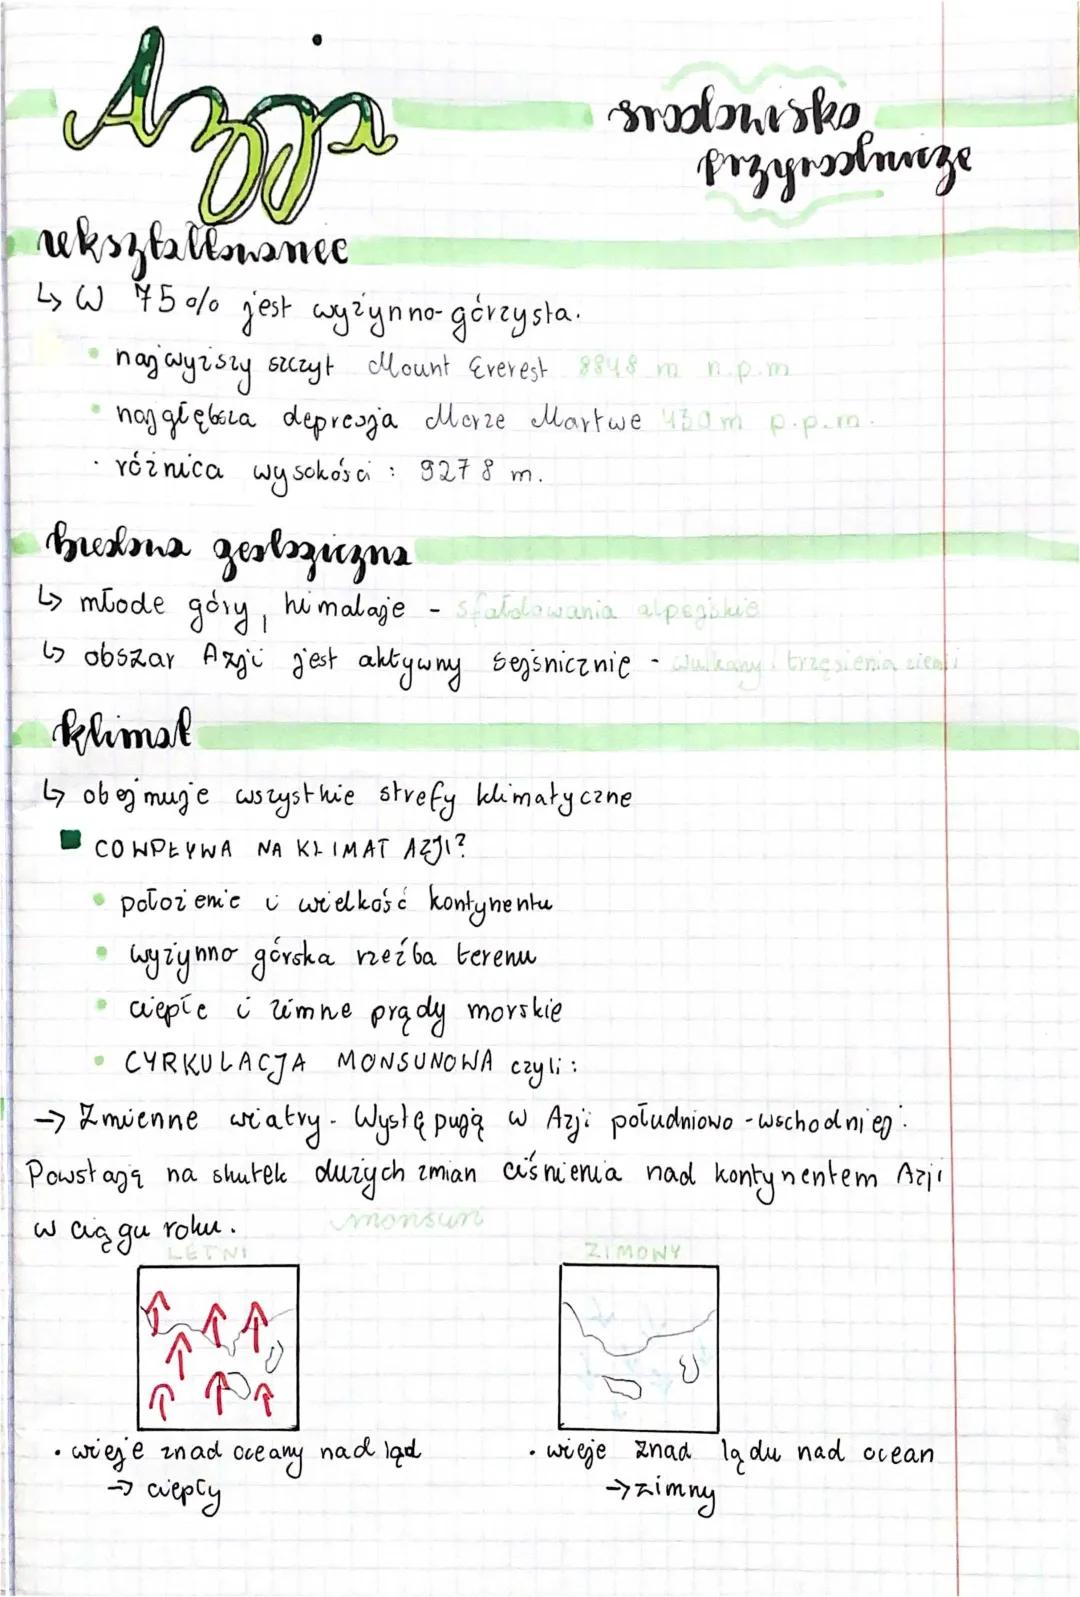 Azja
środowisko
przyrodnicze
ukształtowanie
↳ W 75% jest wyżynno-górzysta.
• najwyższy szczyt Mount Everest 8848 m n.p.m
• najgłębsza depresja Morze Martwe 430m p.p.m.
• różnica wysokości : 9278 m.
budowa geologiczna
↳ młode góry, himalaje - sfałdowania alpejskie
↳ obszar Azji jest aktywny sejsmicznie - wulkany i trzęsienia ziemi
klimat
↳ obejmuje wszystkie strefy klimatyczne
CO WPŁYWA NA KLIMAT AZJI?
• położenie i wielkość kontynentu
• wyżynno górska rzeźba terenu
• ciepłe i zimne prądy morskie
• CYRKULACJA MONSUNOWA czyli:
→ Zmienne wiatry. Występują w Azji południowo-wschodniej.
Powstają na skutek dużych zmian ciśnienia nad kontynentem Azji
w ciągu roku.
monsun
LETNI
ZIMOWY
• wieje znad oceany nad ląd
→ ciepły
• wieje znad lądu nad ocean
→ zimny